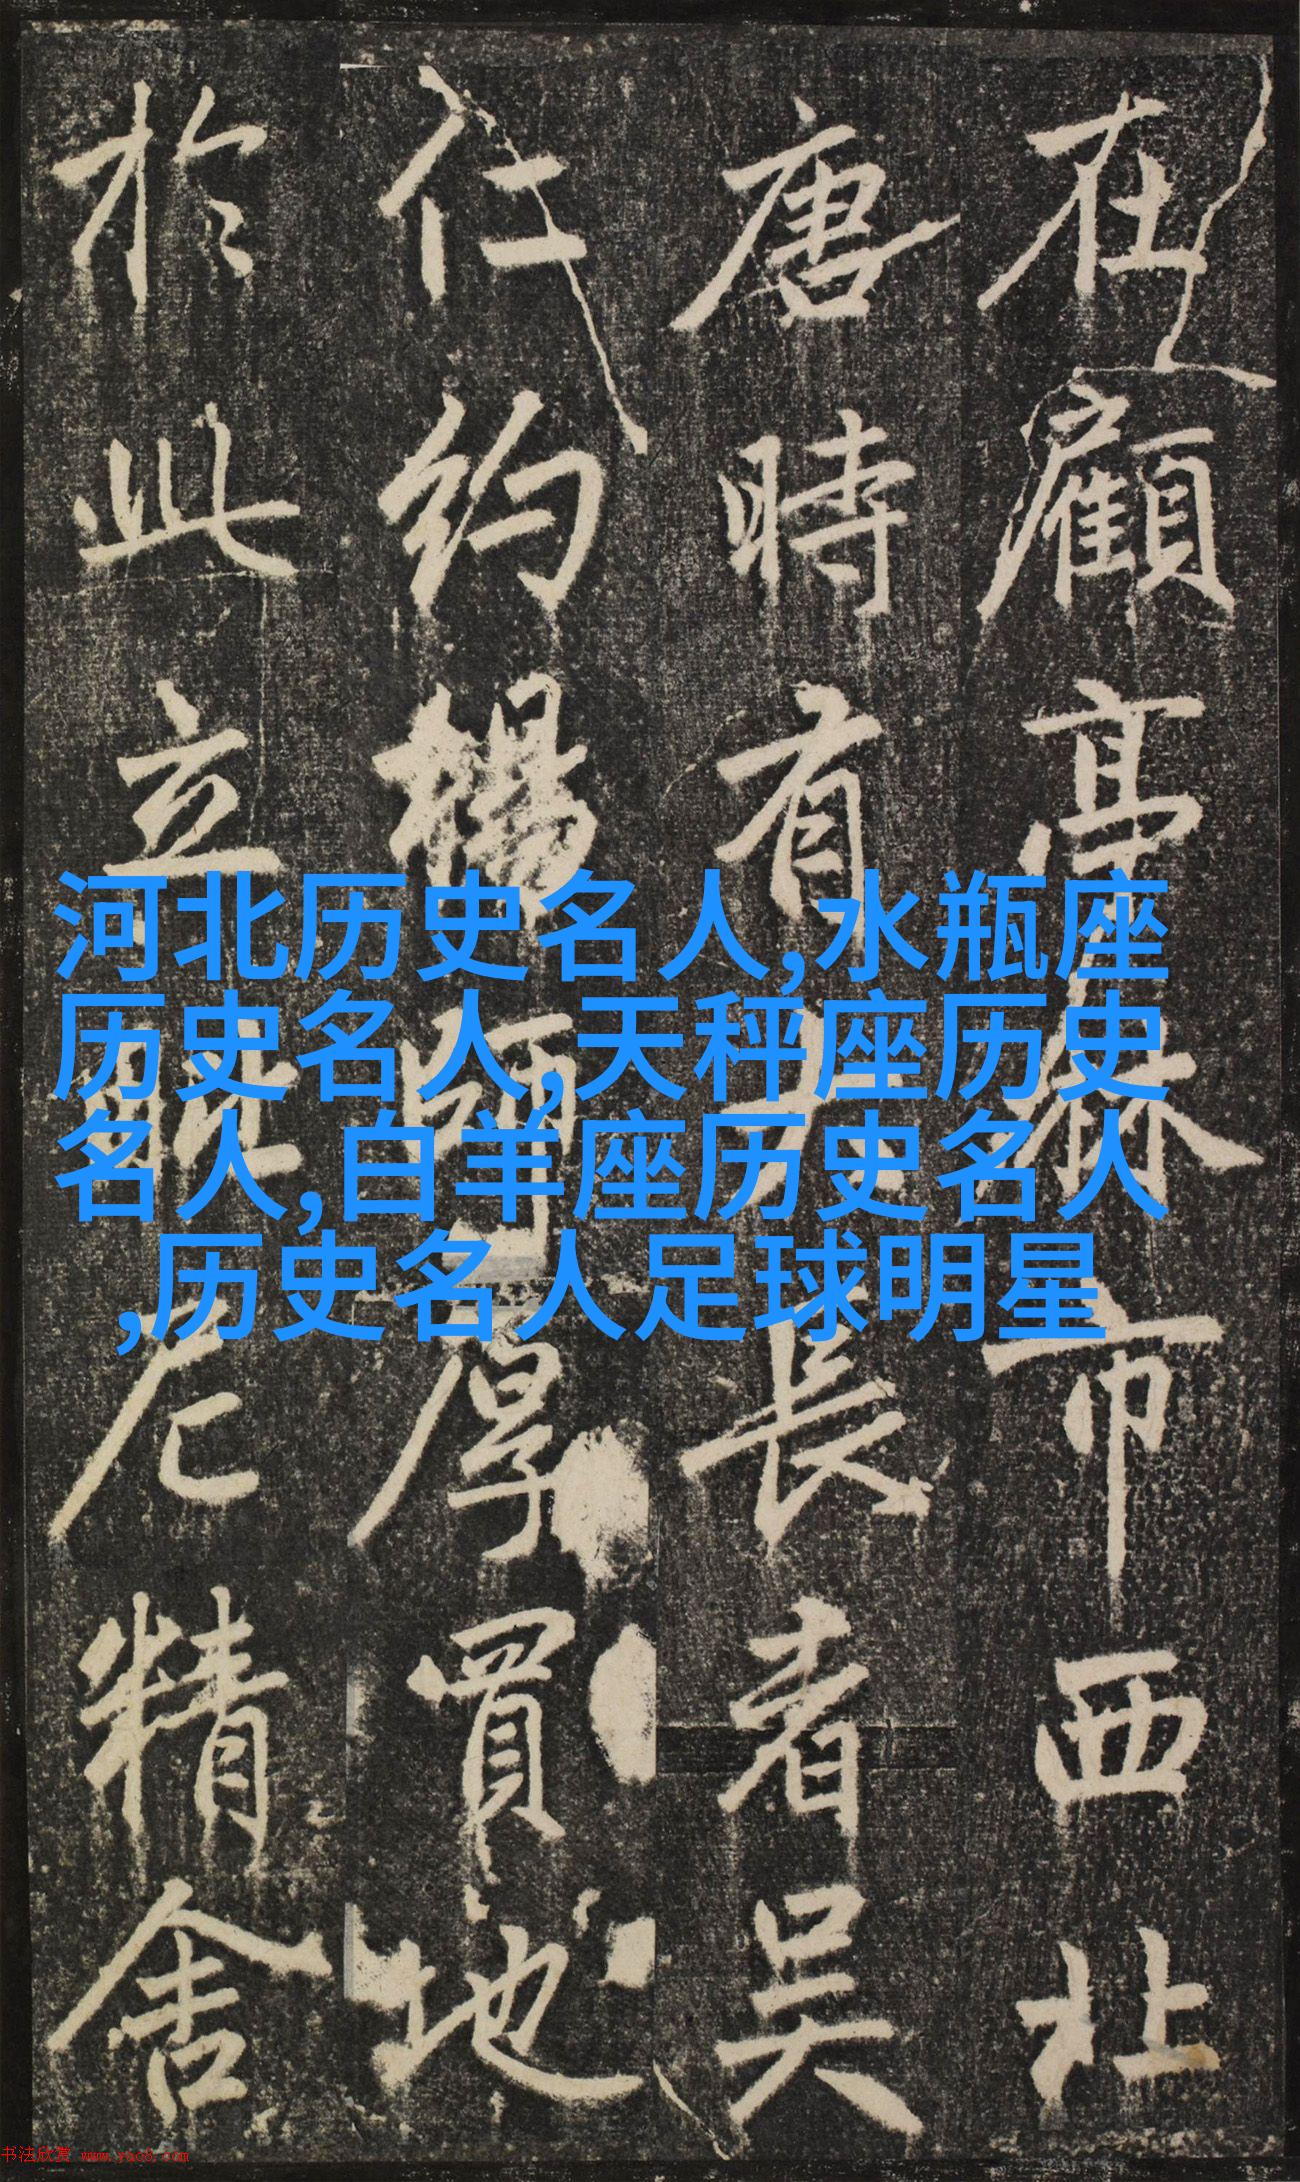 在顧亭林市西北
唐時有大長者吳
仁約厚買地
於此立尼精舍
河北历史名人,水瓶座
历史名人,天秤座历史
名人,白羊座历史名人
,历史名人足球明星
书法欣赏 www.yac8.com